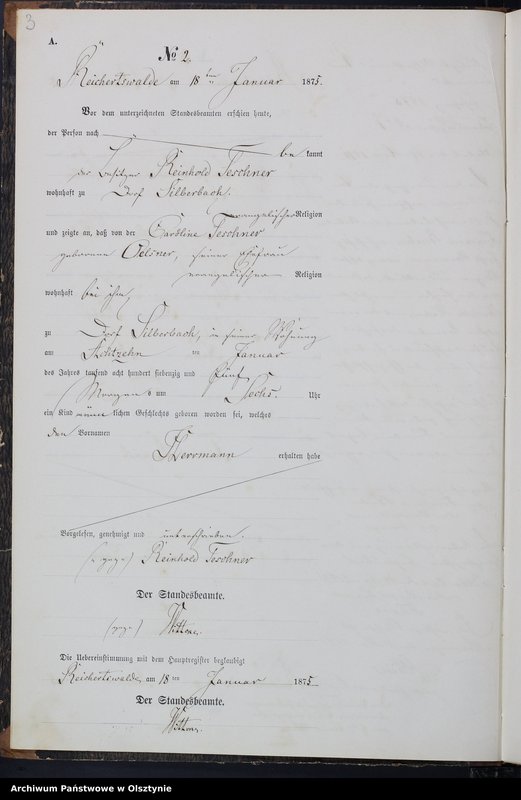 3
A.
No 2.
Reichertswalde am 18ten Januar 1875.
Vor dem unterzeichneten Standesbeamten erschien heute,
der Person nach
be kannt
der Besitzer Reinhold Teschner
wohnhaft zu Dorf Silberbach.
evangelischer Religion
und zeigte an, daß von der Caroline Teschner
geborenen Oelsner, seiner Ehefrau
evangelischer Religion
wohnhaft bei ihm,
zu Dorf Silberbach, in seiner Wohnung
am Achtzehn ten Januar
des Jahres tausend acht hundert siebenzig und fünf
Morgen s um Sechs. Uhr
ein Kind männ lichen Geschlechts geboren worden sei, welches
den Vornamen
Herrmann erhalten habe
Vorgelesen, genehmigt und unterschrieben.
(gez) Reinhold Teschner
Der Standesbeamte.
(gez)
Die Uebereinstimmung mit dem Hauptregister beglaubigt
Reichertswalde, am 18 ten Januar 1875
Der Standesbeamte.
Archiwum Państwowe w Olsztynie